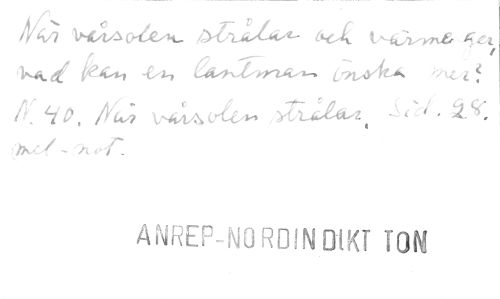 När vårsolen strålar och värme ger,
vad kan en lantman önska mer?
N. 40. När vårsolen strålar. Sid. 28.
mel-not.
ANREP-NORDIN DIKT TON